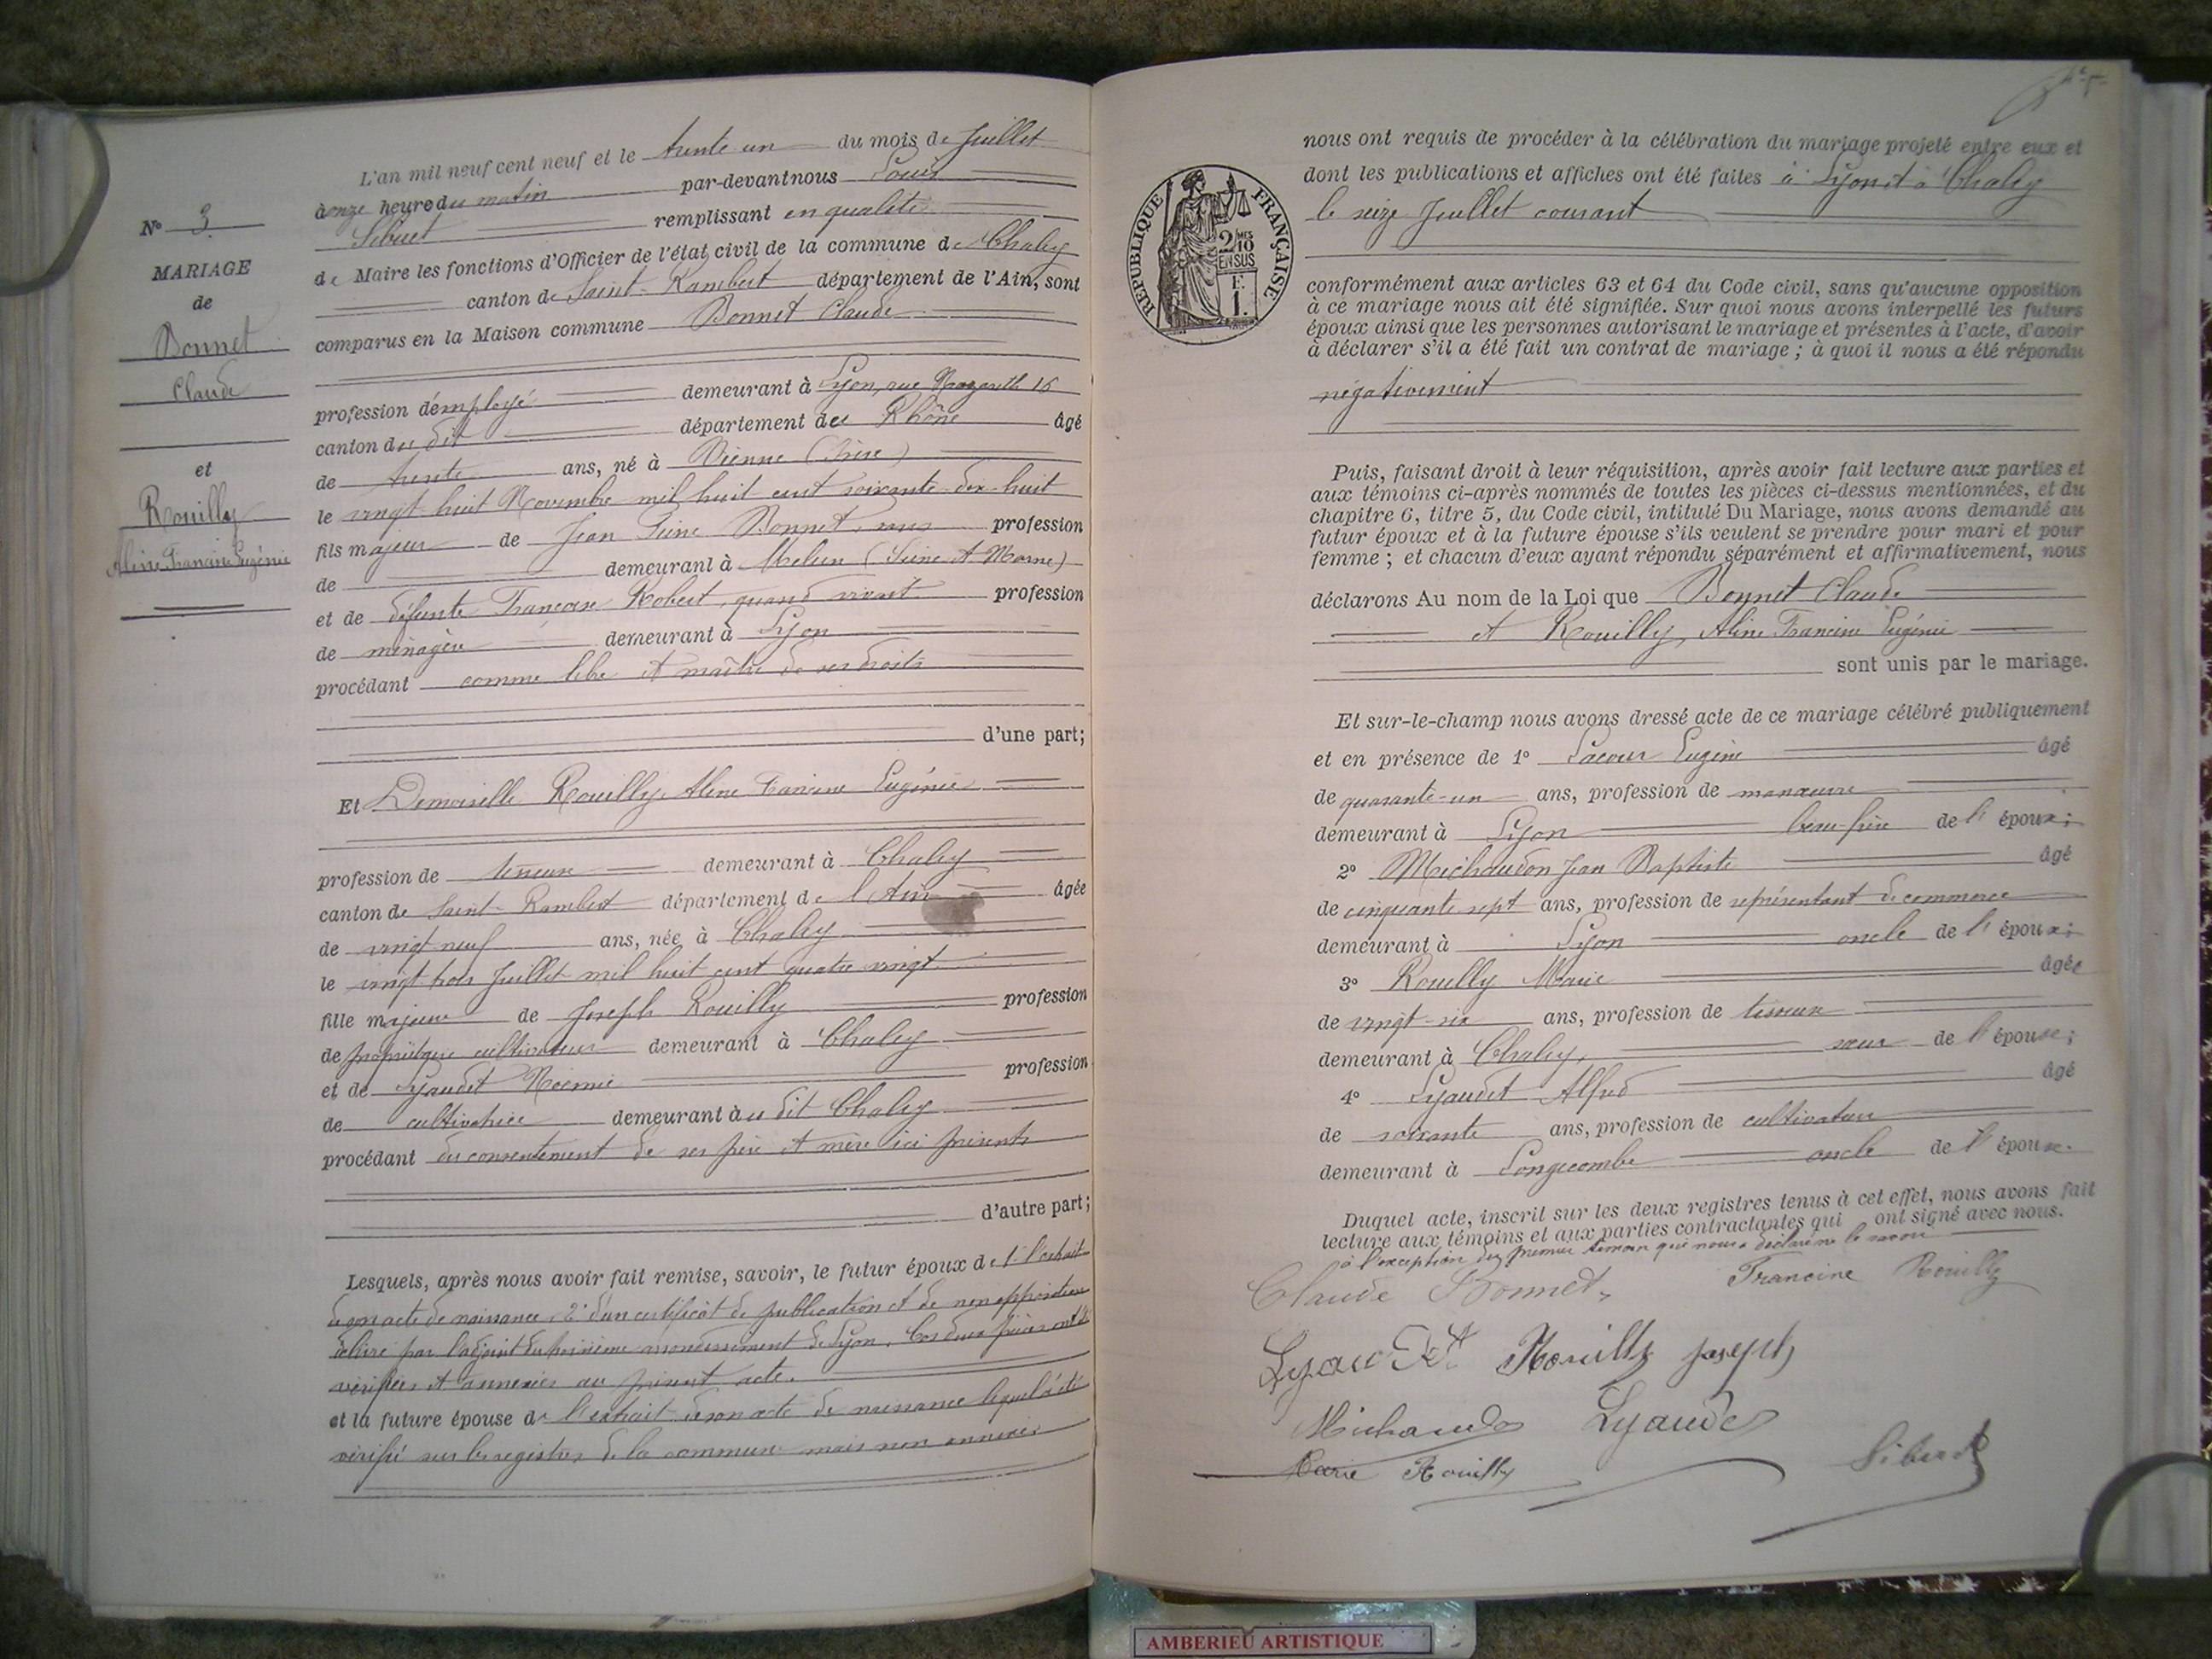 L'an mil neuf cent neuf et le trente un du mois de Juillet
à onze heure du matin par-devant nous Louis
Sibuet remplissant en qualité
de Maire les fonctions d'Officier de l'état civil de la commune de Chaley
canton de Saint-Rambert département de l'Ain, sont
comparus en la Maison commune Bonnet Claude
N° 3
MARIAGE
de
Bonnet
Claude
et
Rouilly
Aline Francine Eugénie
profession d'employé demeurant à Lyon, rue Nazareth 16
canton du dit département du Rhône âgé
de trente ans, né à Vienne (Isère)
le vingt huit Novembre mil huit cent soixante-dix-huit
fils majeur de Jean Bonnet, profession
de demeurant à Melun (Seine et Marne)
et de défunte Françoise Robert, quand vivait profession
de ménagère demeurant à Lyon
procédant comme libre et maître de ses droits
d'une part;
Et Demoiselle Rouilly, Aline Francine Eugénie
profession de demeurant à Chaley
canton de Saint-Rambert département de l'Ain âgée
de vingt neuf ans, née à Chaley
le vingt trois Juillet mil huit cent quatre vingt
fille majeure de Joseph Rouilly profession
de propriétaire cultivateur demeurant à Chaley
et de Lyaudet Noémie profession
de cultivatrice demeurant au dit Chaley
procédant du consentement de ses père et mère ici présents
d'autre part;
Lesquels, après nous avoir fait remise, savoir, le futur époux de 1° l'extrait
de son acte de naissance, 2° d'un certificat de publication et de non opposition
délivré par l'adjoint du troisième arrondissement de Lyon. Ces deux pièces ont été
vérifiées et annexées au présent acte.
et la future épouse de l'extrait de son acte de naissance lequel a été
vérifié sur les registres de la commune mais non annexé
nous ont requis de procéder à la célébration du mariage projeté entre eux et
dont les publications et affiches ont été faites à Lyon et à Chaley
le seize Juillet courant
RÉPUBLIQUE FRANÇAISE
2/10MES
EN SUS
F.
1.
conformément aux articles 63 et 64 du Code civil, sans qu'aucune opposition
à ce mariage nous ait été signifiée. Sur quoi nous avons interpellé les futurs
époux ainsi que les personnes autorisant le mariage et présentes à l'acte, d'avoir
à déclarer s'il a été fait un contrat de mariage ; à quoi il nous a été répondu
négativement
Puis, faisant droit à leur réquisition, après avoir fait lecture aux parties et
aux témoins ci-après nommés de toutes les pièces ci-dessus mentionnées, et du
chapitre 6, titre 5, du Code civil, intitulé Du Mariage, nous avons demandé au
futur époux et à la future épouse s'ils veulent se prendre pour mari et pour
femme ; et chacun d'eux ayant répondu séparément et affirmativement, nous
déclarons Au nom de la Loi que Bonnet Claude
et Rouilly, Aline Francine Eugénie
sont unis par le mariage.
Et sur-le-champ nous avons dressé acte de ce mariage célébré publiquement
et en présence de 1° Lacour Eugène âgé
de quarante-un ans, profession de manœuvre
demeurant à Lyon beau-frère de l'époux;
2° Michaudon Jean Baptiste âgé
de cinquante sept ans, profession de représentant de commerce
demeurant à Lyon oncle de l'époux;
3° Rouilly Marie âgée
de vingt-six ans, profession de
demeurant à Chaley, sœur de l'épouse;
4° Lyaudet Alfred âgé
de soixante ans, profession de cultivateur
demeurant à Longecombe oncle de l'épouse.
Duquel acte, inscrit sur les deux registres tenus à cet effet, nous avons fait
lecture aux témoins et aux parties contractantes qui ont signé avec nous.
à l'exception du premier témoin qui nous a déclaré ne le savoir
Claude Bonnet. Francine Rouilly
Lyaudet Rouilly joseph
Michaudon Lyaudet
Marie Rouilly Sibuet
AMBERIEU ARTISTIQUE